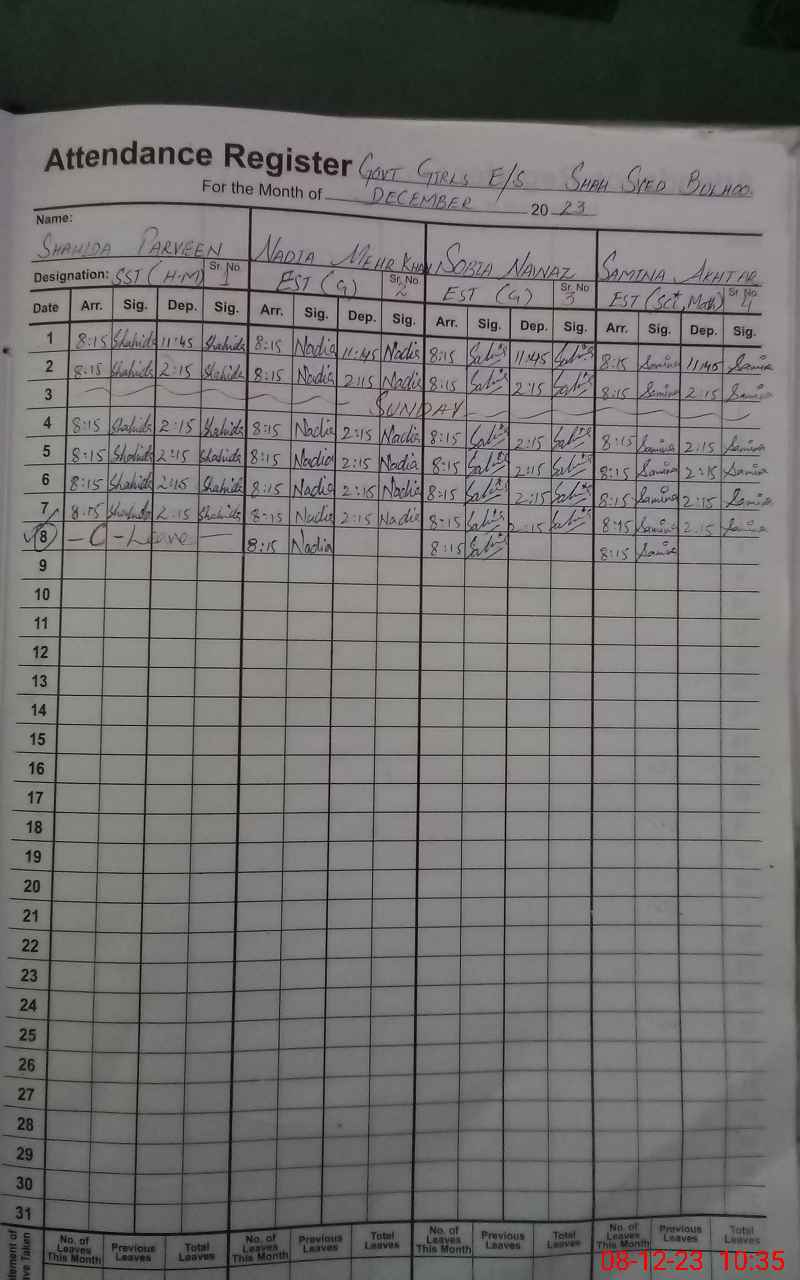 Attendance Register GOVT GIRLS E/S SHAH SYED BULHOO
For the Month of DECEMBER 20 23
Name:
SHAHIDA PARVEEN NADIA MEHR KHAN SOBIA NAWAZ SAMINA AKHTAR
Designation: SST (H.M) Sr. No. 1 EST (G) Sr. No. 2 EST (G) Sr. No. 3 EST (Sct, Math) Sr. No. 4
Date Arr. Sig. Dep. Sig. Arr. Sig. Dep. Sig. Arr. Sig. Dep. Sig. Arr. Sig. Dep. Sig.
1 8:15 Shahida 11:45 Shahida 8:15 Nadia 11:45 Nadia 8:15 11:45 8:15 Samina 11:45 Samina
2 8:15 Shahida 2:15 Shahida 8:15 Nadia 2:15 Nadia 8:15 2:15 8:15 Samina 2:15 Samina
3 SUNDAY
4 8:15 Shahida 2:15 Shahida 8:15 Nadia 2:15 Nadia 8:15 2:15 8:15 Samina 2:15 Samina
5 8:15 Shahida 2:15 Shahida 8:15 Nadia 2:15 Nadia 8:15 2:15 8:15 Samina 2:15 Samina
6 8:15 Shahida 2:15 Shahida 8:15 Nadia 2:15 Nadia 8:15 2:15 8:15 Samina 2:15 Samina
7 8:15 Shahida 2:15 Shahida 8:15 Nadia 2:15 Nadia 8:15 2:15 8:15 Samina 2:15 Samina
8 - C - Leave - 8:15 Nadia 8:15 8:15 Samina
9
10
11
12
13
14
15
16
17
18
19
20
21
22
23
24
25
26
27
28
29
30
31
No. of Leaves This Month Previous Leaves Total Leaves No. of Leaves This Month Previous Leaves Total Leaves No. of Leaves This Month Previous Leaves Total Leaves No. of Leaves This Month Previous Leaves Total Leaves
08-12-23 10:35